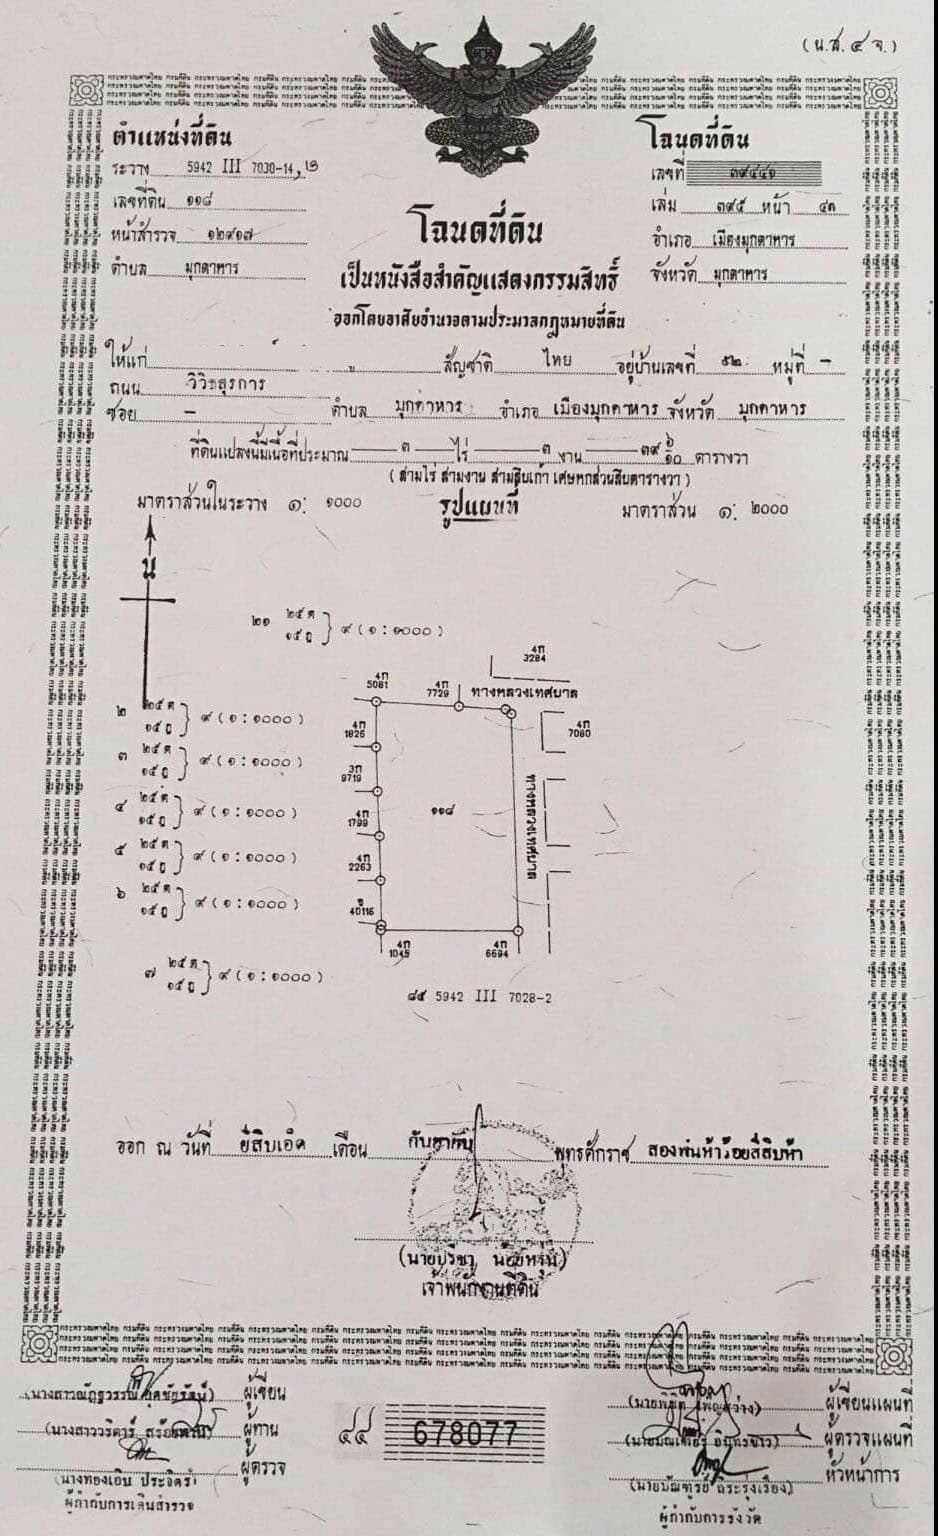 (น.ส. ๔ จ.)
ตำแหน่งที่ดิน
ระวาง 5942 III 7030-14, ๑๓
เลขที่ดิน ๑๑๘
หน้าสำรวจ ๑๒๙๑๗
ตำบล มุกดาหาร
โฉนดที่ดิน
เลขที่ ๓๙๔๔๑
เล่ม ๓๙๕ หน้า ๔๓
อำเภอ เมืองมุกดาหาร
จังหวัด มุกดาหาร
โฉนดที่ดิน
เป็นหนังสือสำคัญแสดงกรรมสิทธิ์
ออกโดยอาศัยอำนาจตามประมวลกฎหมายที่ดิน
ให้แก่ สัญชาติ ไทย อยู่บ้านเลขที่ ๕๒ หมู่ที่ -
ถนน วิวิธสุรการ
ซอย - ตำบล มุกดาหาร อำเภอ เมืองมุกดาหาร จังหวัด มุกดาหาร
ที่ดินแปลงนี้มีเนื้อที่ประมาณ ๓ ไร่ ๓ งาน ๓๙ ๖/๑๐ ตารางวา
(สามไร่ สามงาน สามสิบเก้า เศษหกส่วนสิบตารางวา)
มาตราส่วนในระวาง ๑: ๑๐๐๐ รูปแผนที่ มาตราส่วน ๑: ๒๐๐๐
น
๒๑ ๒๕ ต ๑๕ ฎ } ๙ (๑ : ๑๐๐๐)
4ก 3284
4ก 5081
4ก 7729
ทางหลวงเทศบาล
๒ ๒๕ ต ๑๕ ฎ } ๙ (๑ : ๑๐๐๐)
4ก 1826
4ก 7080
๓ ๒๕ ต ๑๕ ฎ } ๙ (๑ : ๑๐๐๐)
3ก 9719
ทางหลวงเทศบาล
๔ ๒๕ ต ๑๕ ฎ } ๙ (๑ : ๑๐๐๐)
4ก 1799
๑๑๘
๕ ๒๕ ต ๑๕ ฎ } ๙ (๑ : ๑๐๐๐)
4ก 2263
๖ ๒๕ ต ๑๕ ฎ } ๙ (๑ : ๑๐๐๐)
ข 40116
4ก 1045
4ก 6694
๗ ๒๕ ต ๑๕ ฎ } ๙ (๑ : ๑๐๐๐)
๘๕ 5942 III 7028-2
ออก ณ วันที่ ยี่สิบเอ็ด เดือน กันยายน พุทธศักราช สองพันห้าร้อยสี่สิบห้า
(นายปรีชา น้อยหรุ่น)
เจ้าพนักงานที่ดิน
ผู้เขียน
ผู้ทาน
ผู้ตรวจ
(นางทองเอิบ ประจิตร์)
ผู้กำกับการเดินสำรวจ
๔๔ 678077
ผู้เขียนแผนที่
ผู้ตรวจแผนที่
หัวหน้าการ
ผู้กำกับการรังวัด